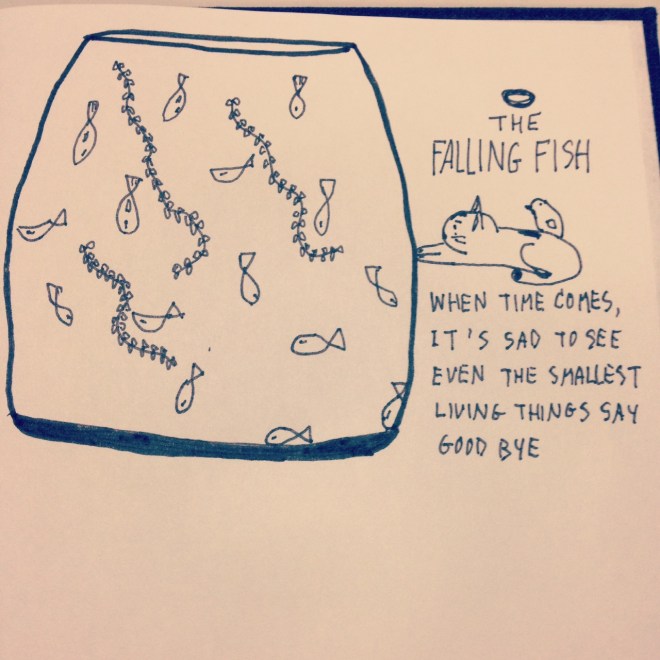 THE
FALLING FISH
WHEN TIME COMES,
IT'S SAD TO SEE
EVEN THE SMALLEST
LIVING THINGS SAY
GOOD BYE